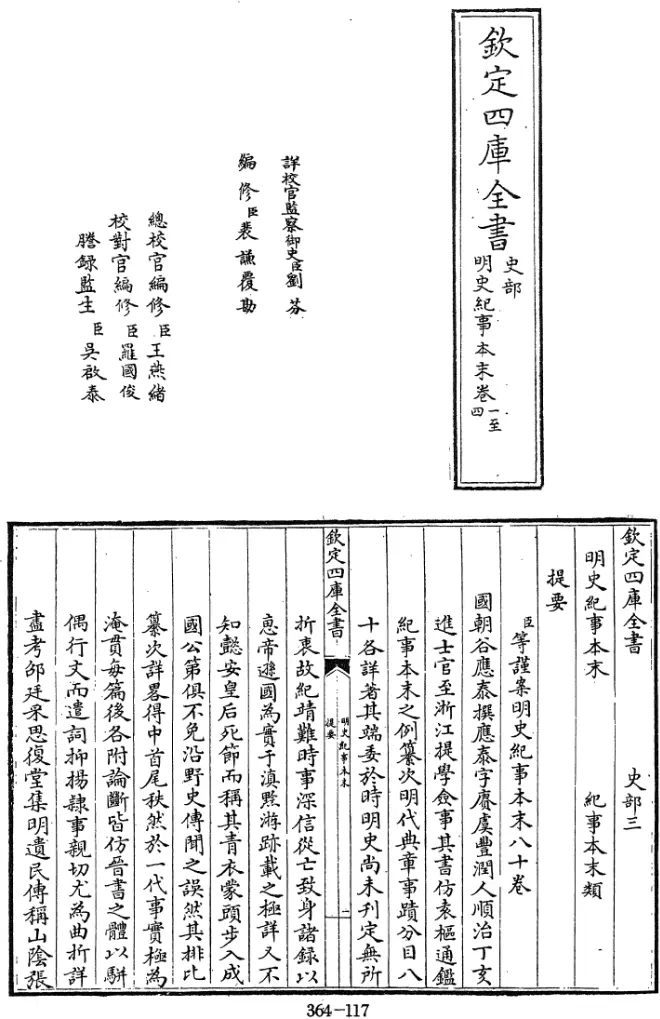 欽定四庫全書
史部
明史紀事本末卷一至四
詳校官監察御史臣劉芬
編修臣裴謙覆勘
總校官編修臣王燕緒
校對官編修臣羅國俊
謄錄監生臣吳啟泰
欽定四庫全書 史部三
明史紀事本末 紀事本末類
提要
臣等謹案明史紀事本末八十卷
國朝谷應泰撰應泰字賡虞豐潤人順治丁亥
進士官至浙江提學僉事其書仿袁樞通鑑
紀事本末之例纂次明代典章事蹟分目八
十各詳著其端委於時明史尚未刊定無所
欽定四庫全書
明史紀事本末
提要
一
折衷故紀靖難時事深信從亡致身諸錄以
惠帝遜國為實于滇黔游跡載之極詳又不
知懿安皇后死節而稱其青衣蒙頭步入成
國公第俱不免沿野史傳聞之誤然其排比
纂次詳畧得中首尾秩然於一代事實極為
淹貫每篇後各附論斷皆仿晉書之體以駢
偶行文而遣詞抑揚隸事親切尤為曲折詳
盡考邵廷采思復堂集明遺民傳稱山陰張
364-117